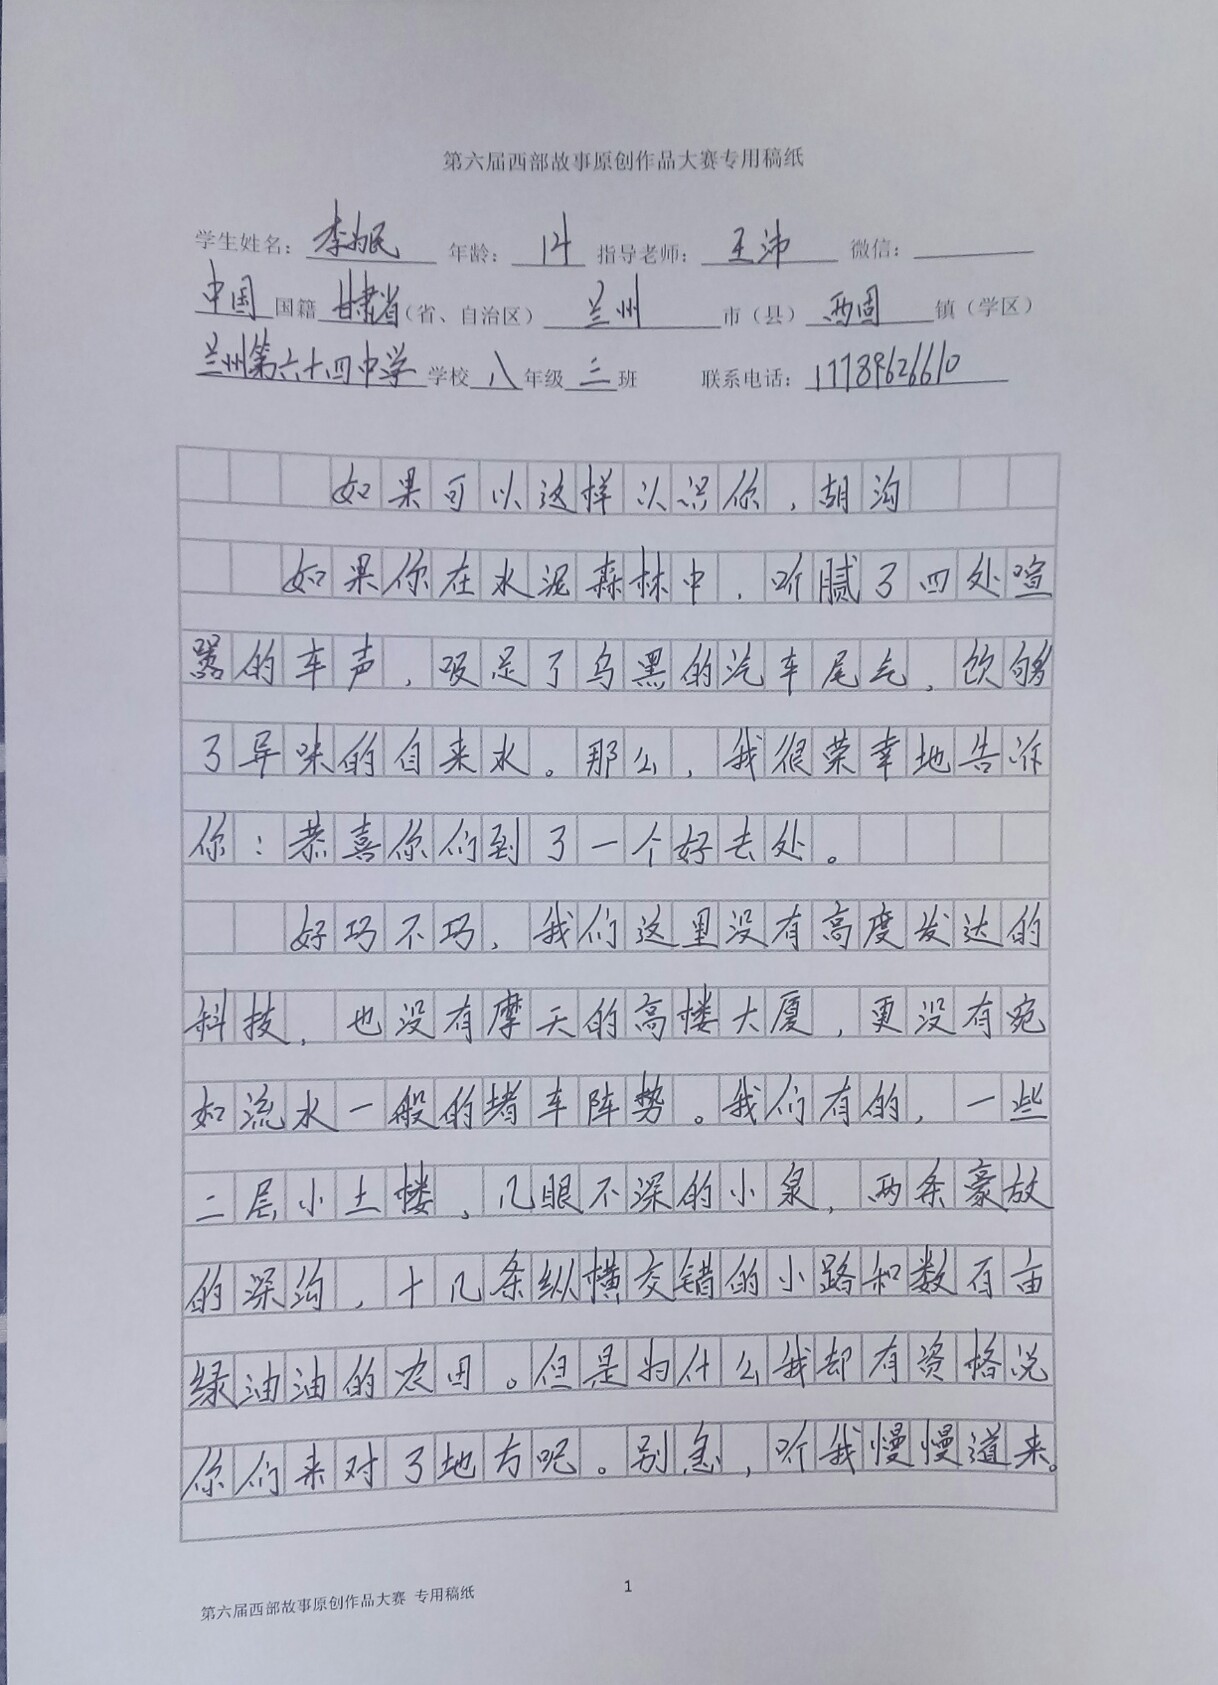 第六届西部故事原创作品大赛专用稿纸
学生姓名：李为民 年龄：14 指导老师：王沛 微信：
中国国籍甘肃省（省、自治区）兰州市（县）西固镇（学区）
兰州第六十四中学学校八年级三班 联系电话：17789626610
如果可以这样认识你，胡沟
如果你在水泥森林中，听腻了四处喧
嚣的车声，吸足了乌黑的汽车尾气，饮够
了异味的自来水。那么，我很荣幸地告诉
你：恭喜你们到了一个好去处。
好巧不巧，我们这里没有高度发达的
科技，也没有摩天的高楼大厦，更没有宛
如流水一般的堵车阵势。我们有的，一些
二层小土楼，几眼不深的小泉，两条豪放
的深沟，十几条纵横交错的小路和数百亩
绿油油的农田。但是为什么我却有资格说
你们来对了地方呢。别急，听我慢慢道来。
第六届西部故事原创作品大赛 专用稿纸
1